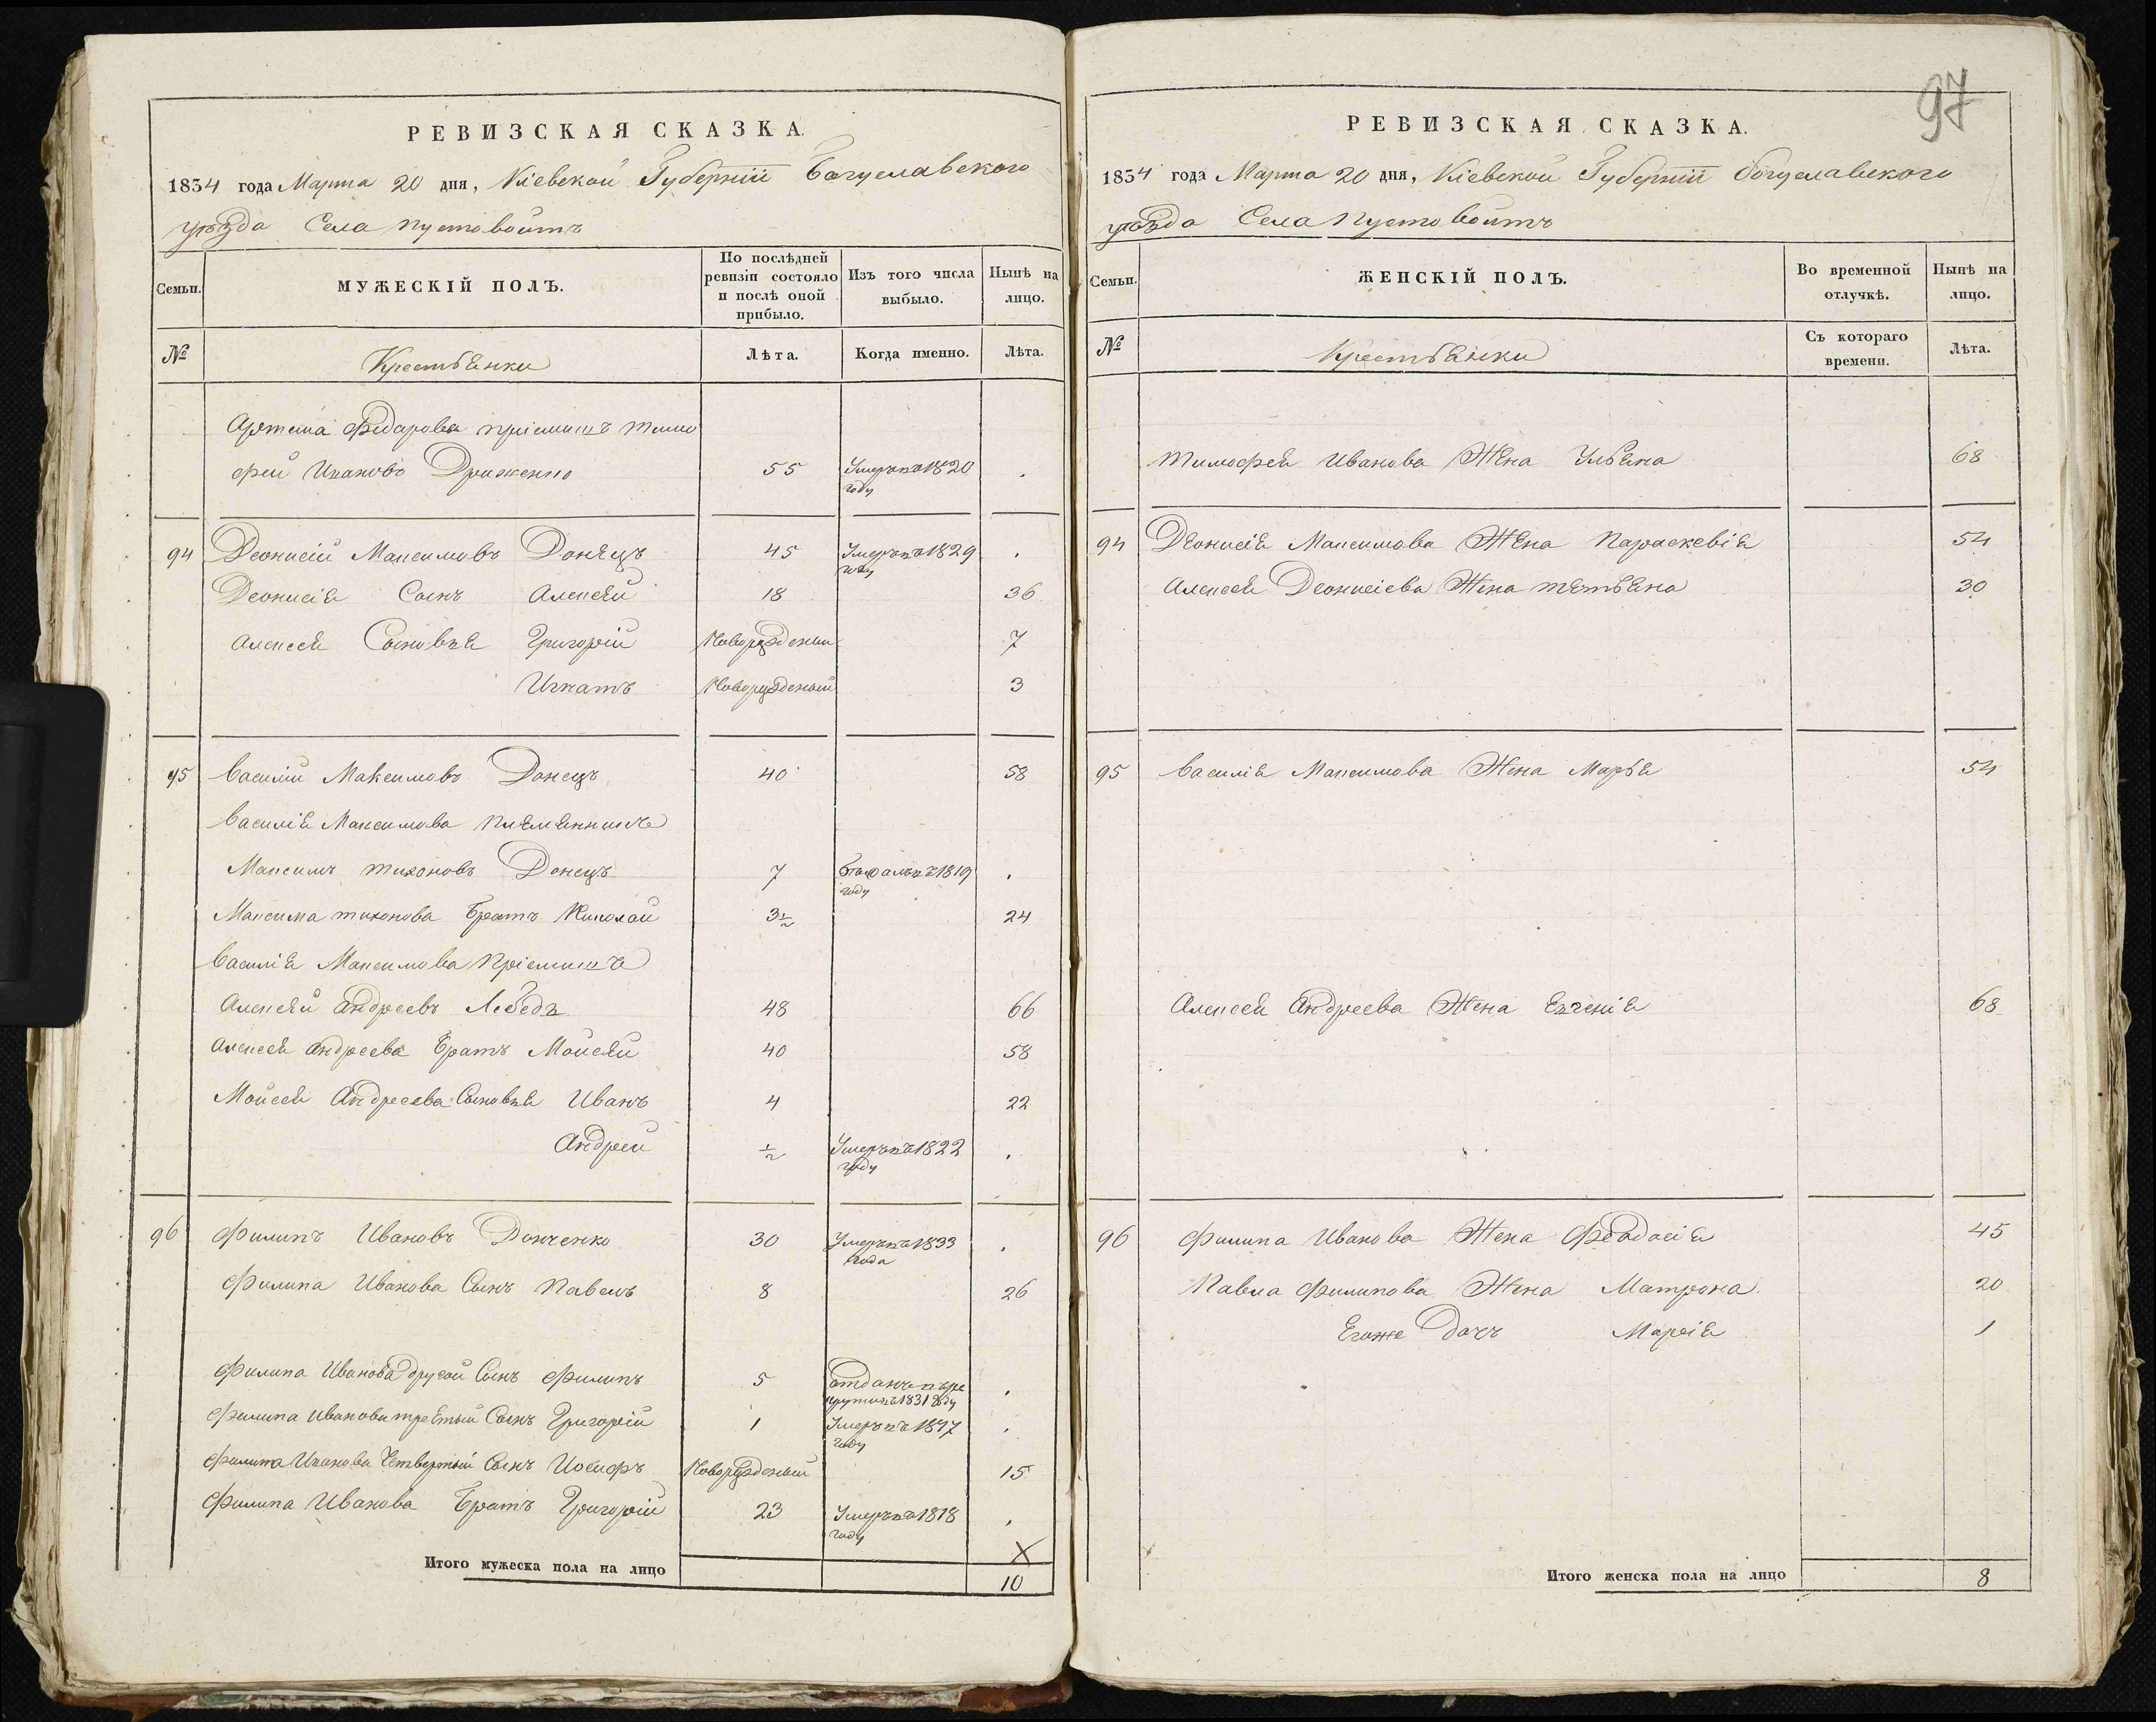 97
РЕВИЗСКАЯ СКАЗКА.
1834 года Марта 20 дня, Кіевской Губерніи Богуславского
уѣзда Села Пустовойтъ
Семьи. МУЖЕСКІЙ ПОЛЪ. По послѣдней ревизіи состояло и послѣ оной прибыло. Изъ того числа выбыло. Нынѣ на лицо.
№ Крестьянки Лѣта. Когда именно. Лѣта.
Артема Федарова пріемишъ Тимо
фей Ивановъ 55 Умеръ въ 1820 году
94 Деонисій Максимовъ Донецъ 45 Умеръ въ 1829 году
Деонисія Сынъ Алексѣй 18 36
Алексея Сыновья Григорій Новорожденый 7
Игнатъ Новорожденый 3
95 Василій Максимовъ Донецъ 40 58
Василія Максимова Племянникъ
Максимъ Тихоновъ Донецъ 7 1819 году
Максима Тихонова Братъ Николай 3½ 24
Василія Максимова Пріемишъ
Алексей Андреевъ Лебедь 48 66
Алексея Андреева Братъ Мойсей 40 58
Мойсея Андреева Сыновья Иванъ 4 22
Андрей ½ Умеръ въ 1822 году
96 Филипъ Ивановъ Донченко 30 Умеръ въ 1833 года
Филипа Иванова Сынъ Павелъ 8 26
Филипа Иванова другой Сынъ Филипъ 5 отданъ въ рекруты въ 1831 году
Филипа Иванова третый Сынъ Григорій 1 Умеръ въ 1817 году
Филипа Иванова Четвертый Сынъ Иосифъ Новорожденый 15
Филипа Иванова Братъ Григорій 23 Умеръ въ 1818 году
Х
Итого мужеска пола на лицо 10
РЕВИЗСКАЯ СКАЗКА.
1834 года Марта 20 дня, Кіевской Губерніи Богуславского
уѣзда Села Пустовойтъ
Семьи. ЖЕНСКІЙ ПОЛЪ. Во временной отлучкѣ. Нынѣ на лицо.
№ Крестьянки Съ котораго времени. Лѣта.
Тимофея Иванова Жена Ульяна 68
94 Деонисія Максимова Жена Параскевія 54
Алексея Деонисіева Жена Тетьяна 30
95 Василія Максимова Жена Марья 54
Алексея Андреева Жена Евгенія 68
96 Филипа Иванова Жена Феодосія 45
Павла Филипова Жена Матрона 20
Егоже Дочь Марія 1
Итого женска пола на лицо 8